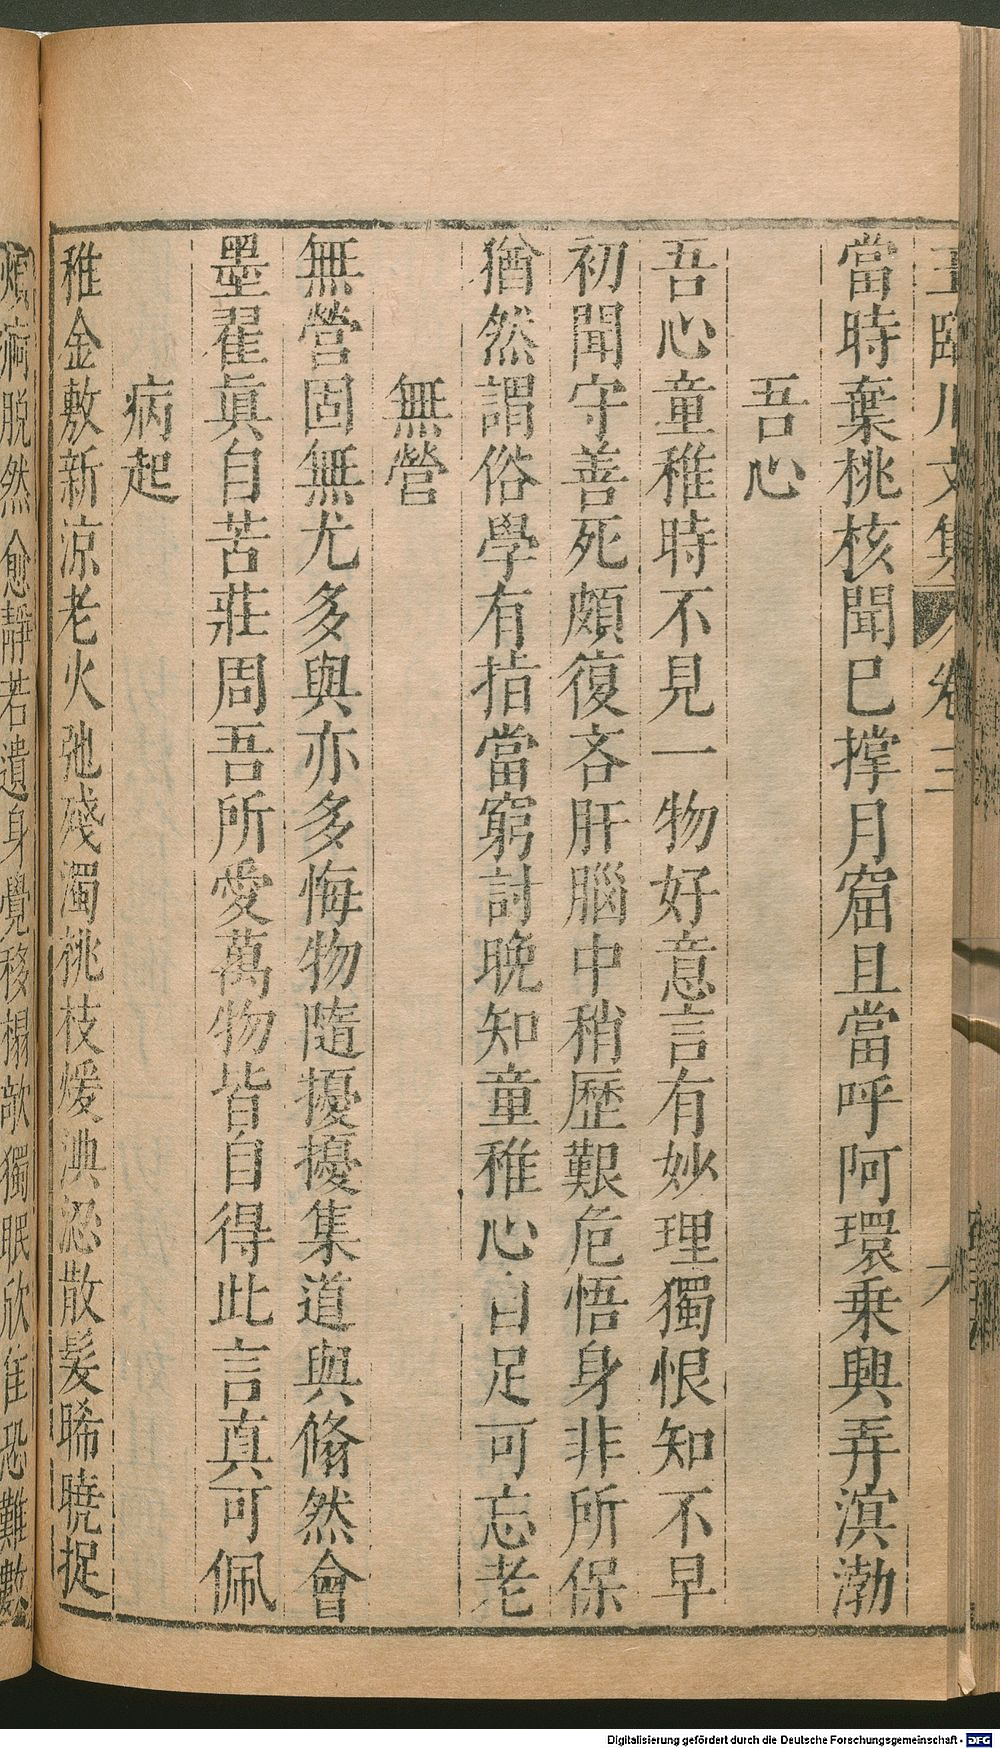 王臨川文集 卷三
當時棄桃核聞已撑月窟且當呼阿環乗興弄溟渤
吾心
吾心童稚時不見一物好意言有妙理獨恨知不早
初聞守善死頗復吝肝腦中稍歷艱危悟身非所保
猶然謂俗學有指當窮討晚知童稚心自足可忘老
無營
無營固無尤多與亦多悔物隨擾擾集道與翛然會
墨翟眞自苦莊周吾所愛萬物皆自得此言真可佩
病起
稚金敷新涼老火弛殘濁桃枝煖淟涊散髮晞曉捉
煩痾脫然愈靜若遺身覺移榻欹獨眠欣佳恐難數
Digitalisierung gefördert durch die Deutsche Forschungsgemeinschaft - DFG